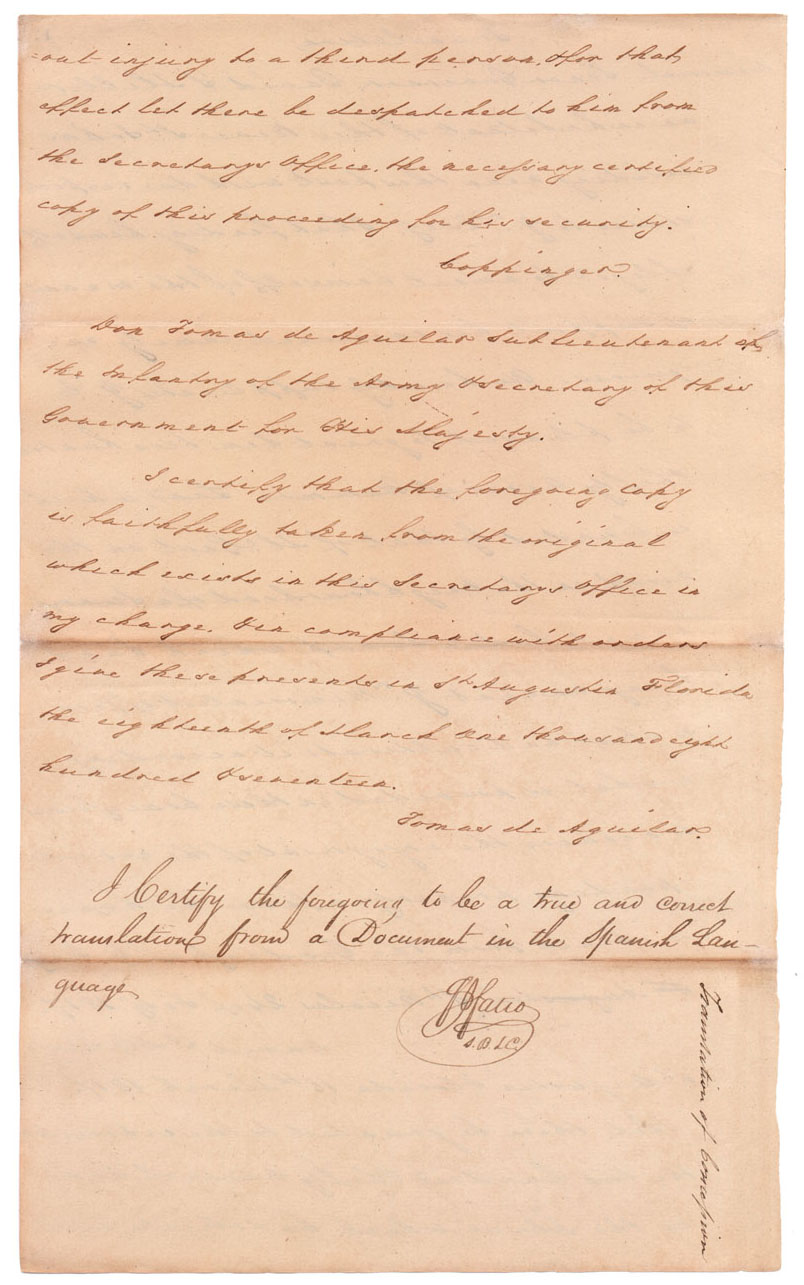 =out injury to a third person, & for that
effect let there be despatched to him from
the Secretarys Office, the necessary certified
copy of this proceeding for his security.
Coppinger.
Don Tomas de Aguilar Sublieutenant of
the Infantry of the Army & Secretary of this
Government for His Majesty.
I certify that the foregoing copy
is faithfully taken from the original
which exists in this Secretarys Office in
my charge. & in compliance with orders
I give these presents in St Augustin Florida
the eighteenth of March One thousand eight
hundred & seventeen.
Tomas de Aguilar.
I Certify the foregoing to be a true and correct
translation from a Document in the Spanish Lan-
guage
Fatio
S.B.L.C.
Translation of Concession